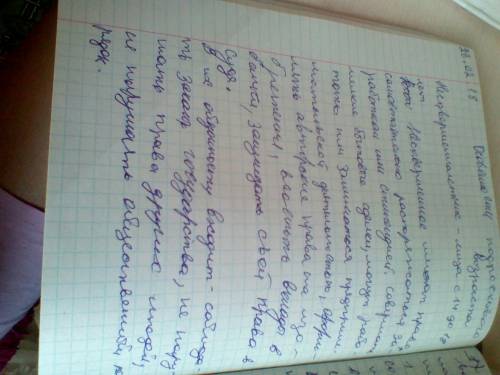 22.02.18
Несовершеннолетние – лица с 14 до 18
лет. Несовершенные имеют право
самостоятельно распоряжаться за
работком или стипендией, совершать
мелкие бытовые сделки, могут рабо
тать или заниматься предприни
мательской деятельностью, оформ
лять авторские права на изо-
бретения, вносить вклады в
банки, защищать свои права в
суде.
В их обязанности входит - соблюда-
ть законы государства, не нару-
шать права других людей,
не нарушать общественный по
рядок.